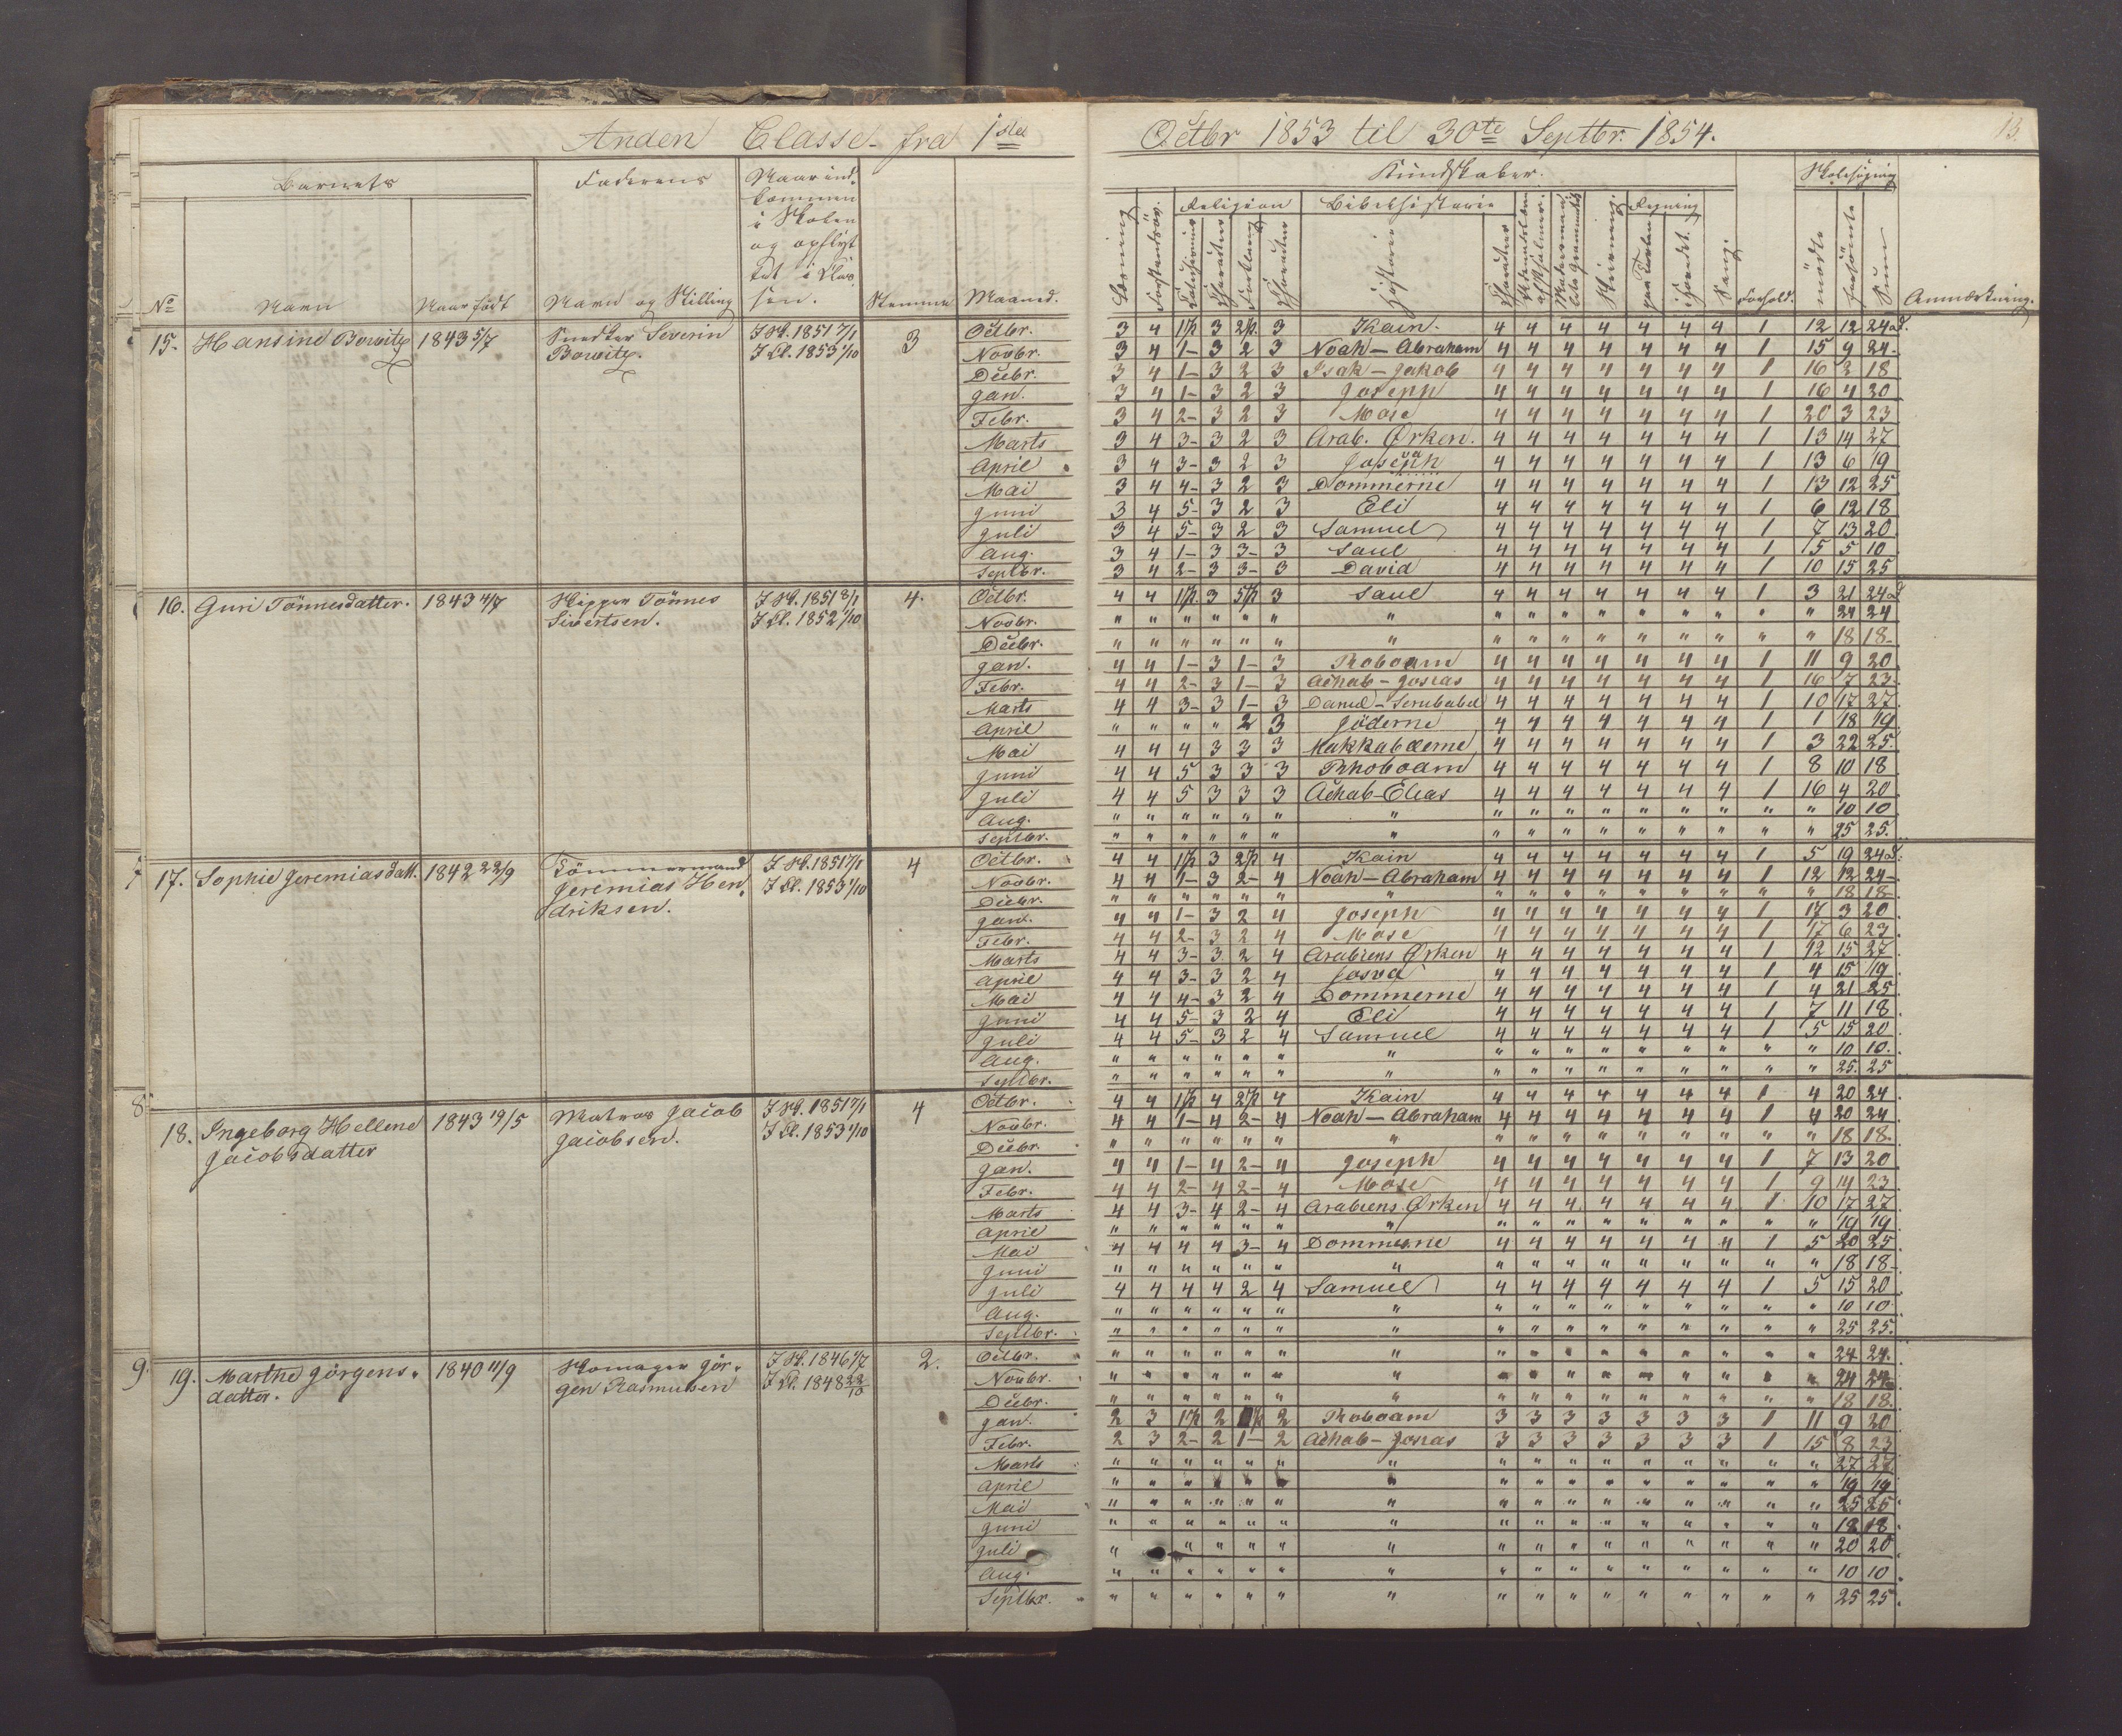 Anden Classe fra 1ste Octbr 1853 til 30te Septbr. 1854.
13.
Barnets
Faderens
Naar ind-
kommen
i Skolen
og opflyt
tet i Clas
sen.
No
Navn
Naar født
Navn og Stilling
Stemme
Maaned.
Kundskaber.
Religion
Bibelhistorie
Regning
Skolesøgning
Læsning
Forklaring
Historie
Skrivning
paa Tavlen
i Hovedet.
Sang.
Forhold.
mødte
forsømte
Sum
Anmærkning.
15. Hansine Bowitz 1843 5/7 Severin I Sk. 1851 7/1 3
Bowitz. I Cl. 1853 1/10
Octbr. 3 4 1½ 3 2½ 3 Kain. 4 4 4 4 4 4 4 1 12 12 24 d.
Novbr. 3 4 1- 3 2 3 Noah - Abraham 4 4 4 4 4 4 4 1 15 9 24-
Decbr. 3 4 1- 3 2 3 Isak - Jakob 4 4 4 4 4 4 4 1 16 2 18
Jan. 3 4 1- 3 2 3 Joseph 4 4 4 4 4 4 4 1 16 4 20
Febr. 3 4 2- 3 2 3 Mose 4 4 4 4 4 4 4 1 20 3 23
Marts 3 4 3- 3 2 3 Arab. Ørken. 4 4 4 4 4 4 4 1 13 14 27
April 3 4 3- 3 2 3 4 4 4 4 4 4 4 1 13 6 19
Mai 3 4 4- 3 2 3 Dommerne 4 4 4 4 4 4 4 1 13 12 25
Juni 3 4 5- 3 2 3 Eli 4 4 4 4 4 4 4 1 6 12 18
Juli 3 4 5- 3 2 3 Samuel 4 4 4 4 4 4 4 1 7 13 20
Aug. 3 4 1- 3 3- 3 Saul 4 4 4 4 4 4 4 1 5 5 10
Septbr. 3 4 2- 3 3- 3 David 4 4 4 4 4 4 4 1 10 15 25
16. Guri Tönnesdatter. 1843 4/7 Skipper Tönnes I Sk. 1851 8/1 4.
Sivertsen. I Cl. 1852 1/10
Octbr. 4 4 1½ 3 5½ 3 Saul 4 4 4 4 4 4 4 1 3 21 24 d
Novbr. " " " " " " " " " " " " " " " " 24 24
Decbr. " " " " " " " " " " " " " " " " 18 18-
Jan. 4 4 1- 3 1- 3 Roboam 4 4 4 4 4 4 4 1 11 9 20
Febr. 4 4 2- 3 1- 3 Achab - Josias 4 4 4 4 4 4 4 1 16 7 23
Marts 4 4 3- 3 1- 3 Daniel - Serubabel 4 4 4 4 4 4 4 1 10 17 27
April " " " " 2 3 Jöderne 4 4 4 4 4 4 4 1 1 18 19
Mai 4 4 4 3 3 3 Makkabæerne 4 4 4 4 4 4 4 1 3 22 25
Juni 4 4 5 3 3 3 Rhoboam 4 4 4 4 4 4 4 1 8 10 18
Juli 4 4 5 3 3 3 Achab-Elias 4 4 4 4 4 4 4 1 16 4 20
Aug. " " " " " " " " " " " " " " " " 10 10
Septbr. " " " " " " " " " " " " " " " " 25 25.
7 17. Sophie Jeremiasdatt. 1842 22/9 Tömmermand I Sk. 1851 7/1 4
Jeremias Hen I Cl. 1853 1/10
driksen.
Octbr. 4 4 1½ 3 2½ 4 Kain 4 4 4 4 4 4 4 1 5 19 24 d.
Novbr. 4 4 1- 3 2- 4 Noah - Abraham 4 4 4 4 4 4 4 1 12 12 24-
Decbr. " " " " " " " " " " " " " " " " 18 18
Jan. 4 4 1- 3 2 4 Joseph 4 4 4 4 4 4 4 1 17 3 20
Febr. 4 4 2- 3 2 4 Mose 4 4 4 4 4 4 4 1 17 6 23
Marts 4 4 3- 3 2 4 Arabiens Ørken 4 4 4 4 4 4 4 1 12 15 27
April 4 4 3- 3 2 4 Josva 4 4 4 4 4 4 4 1 4 15 19
Mai 4 4 4- 3 2 4 Dommerne 4 4 4 4 4 4 4 1 4 21 25
Juni 4 4 5- 3 2 4 Eli 4 4 4 4 4 4 4 1 7 11 18
Juli 4 4 5- 3 2 4 Samuel 4 4 4 4 4 4 4 1 5 15 20
Aug. " " " " " " " " " " " " " " " " 10 10.
Septbr. " " " " " " " " " " " " " " " " 25. 25
8 18. Ingeborg Hellene 1843 19/5 Matros Jacob I Sk. 1851 7/1 4
Jacobsdatter Jacobsen. I Cl. 1853 1/10
Octbr. 4 4 1½ 4 2½ 4 Kain 4 4 4 4 4 4 4 1 4 20 24
Novbr. 4 4 1- 4 2- 4 Noah - Abraham 4 4 4 4 4 4 4 1 4 20 24
Decbr. " " " " " " " " " " " " " " " " 18 18.
Jan. 4 4 1- 4 2- 4 Joseph 4 4 4 4 4 4 4 1 7 13 20
Febr. 4 4 2- 4 2- 4 Mose 4 4 4 4 4 4 4 1 9 14 23
Marts 4 4 3- 4 2- 4 Arabiens Ørken 4 4 4 4 4 4 4 1 10 17 27
April " " " " " " " " " " " " " " " " 19 19
Mai 4 4 4 4 3- 4 Dommerne 4 4 4 4 4 4 4 1 5 20 25
Juni " " " " " " " " " " " " " " " " 18 18-
Juli 4 4 4 4 2 4 Samuel 4 4 4 4 4 4 4 1 5 15 20
Aug. " " " " " " " " " " " " " " " " 10 10
Septbr. " " " " " " " " " " " " " " " " 25 25.
9. 19. Marthe Jörgens- 1840 11/9 Skomager Jör- I Sk. 1846 1/7 2.
datter. gen Rasmusen I Cl. 1848 22/10
Octbr. " " " " " " " " " " " " " " " " 24 24.
Novbr. " " " " " " " " " " " " " " " " 24 24
Decbr. " " " " " " " " " " " " " " " " 18 18.
Jan. 2 3 1½ 2 2 Roboam 3 3 3 3 3 3 3 1 11 9 20
Febr. 2 3 2- 2 1- 2 Achab - Josias 3 3 3 3 3 3 3 1 15 8 23
Marts " " " " " " " " " " " " " " " " 27 27
April " " " " " " " " " " " " " " " " 19 19
Mai " " " " " " " " " " " " " " " " 25 25
Juni " " " " " " " " " " " " " " " " 18 18
Juli " " " " " " " " " " " " " " " 20 20
Aug. " " " " " " " " " " " " " " " " 10 10
Septbr. " " " " " " " " " " " " " " " " 25 25